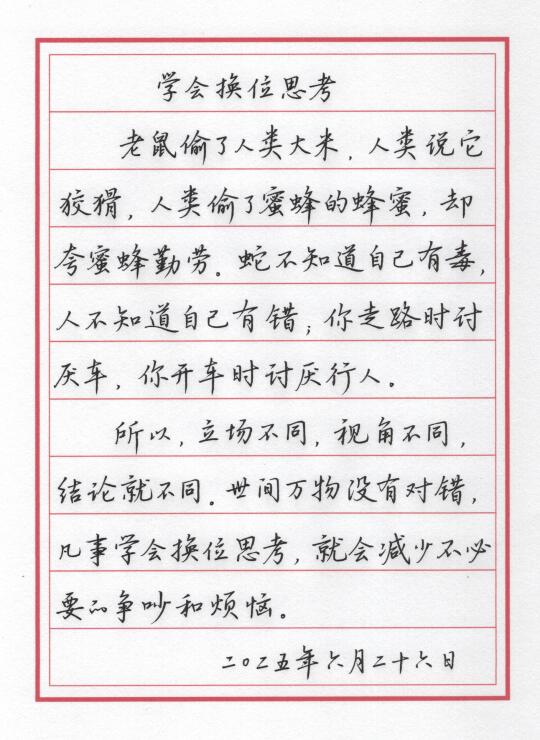 学会换位思考
老鼠偷了人类大米，人类说它
狡猾，人类偷了蜜蜂的蜂蜜，却
夸蜜蜂勤劳。蛇不知道自己有毒，
人不知道自己有错；你走路时讨
厌车，你开车时讨厌行人。
所以，立场不同，视角不同，
结论就不同。世间万物没有对错，
凡事学会换位思考，就会减少不必
要的争吵和烦恼。
二〇二五年六月二十六日